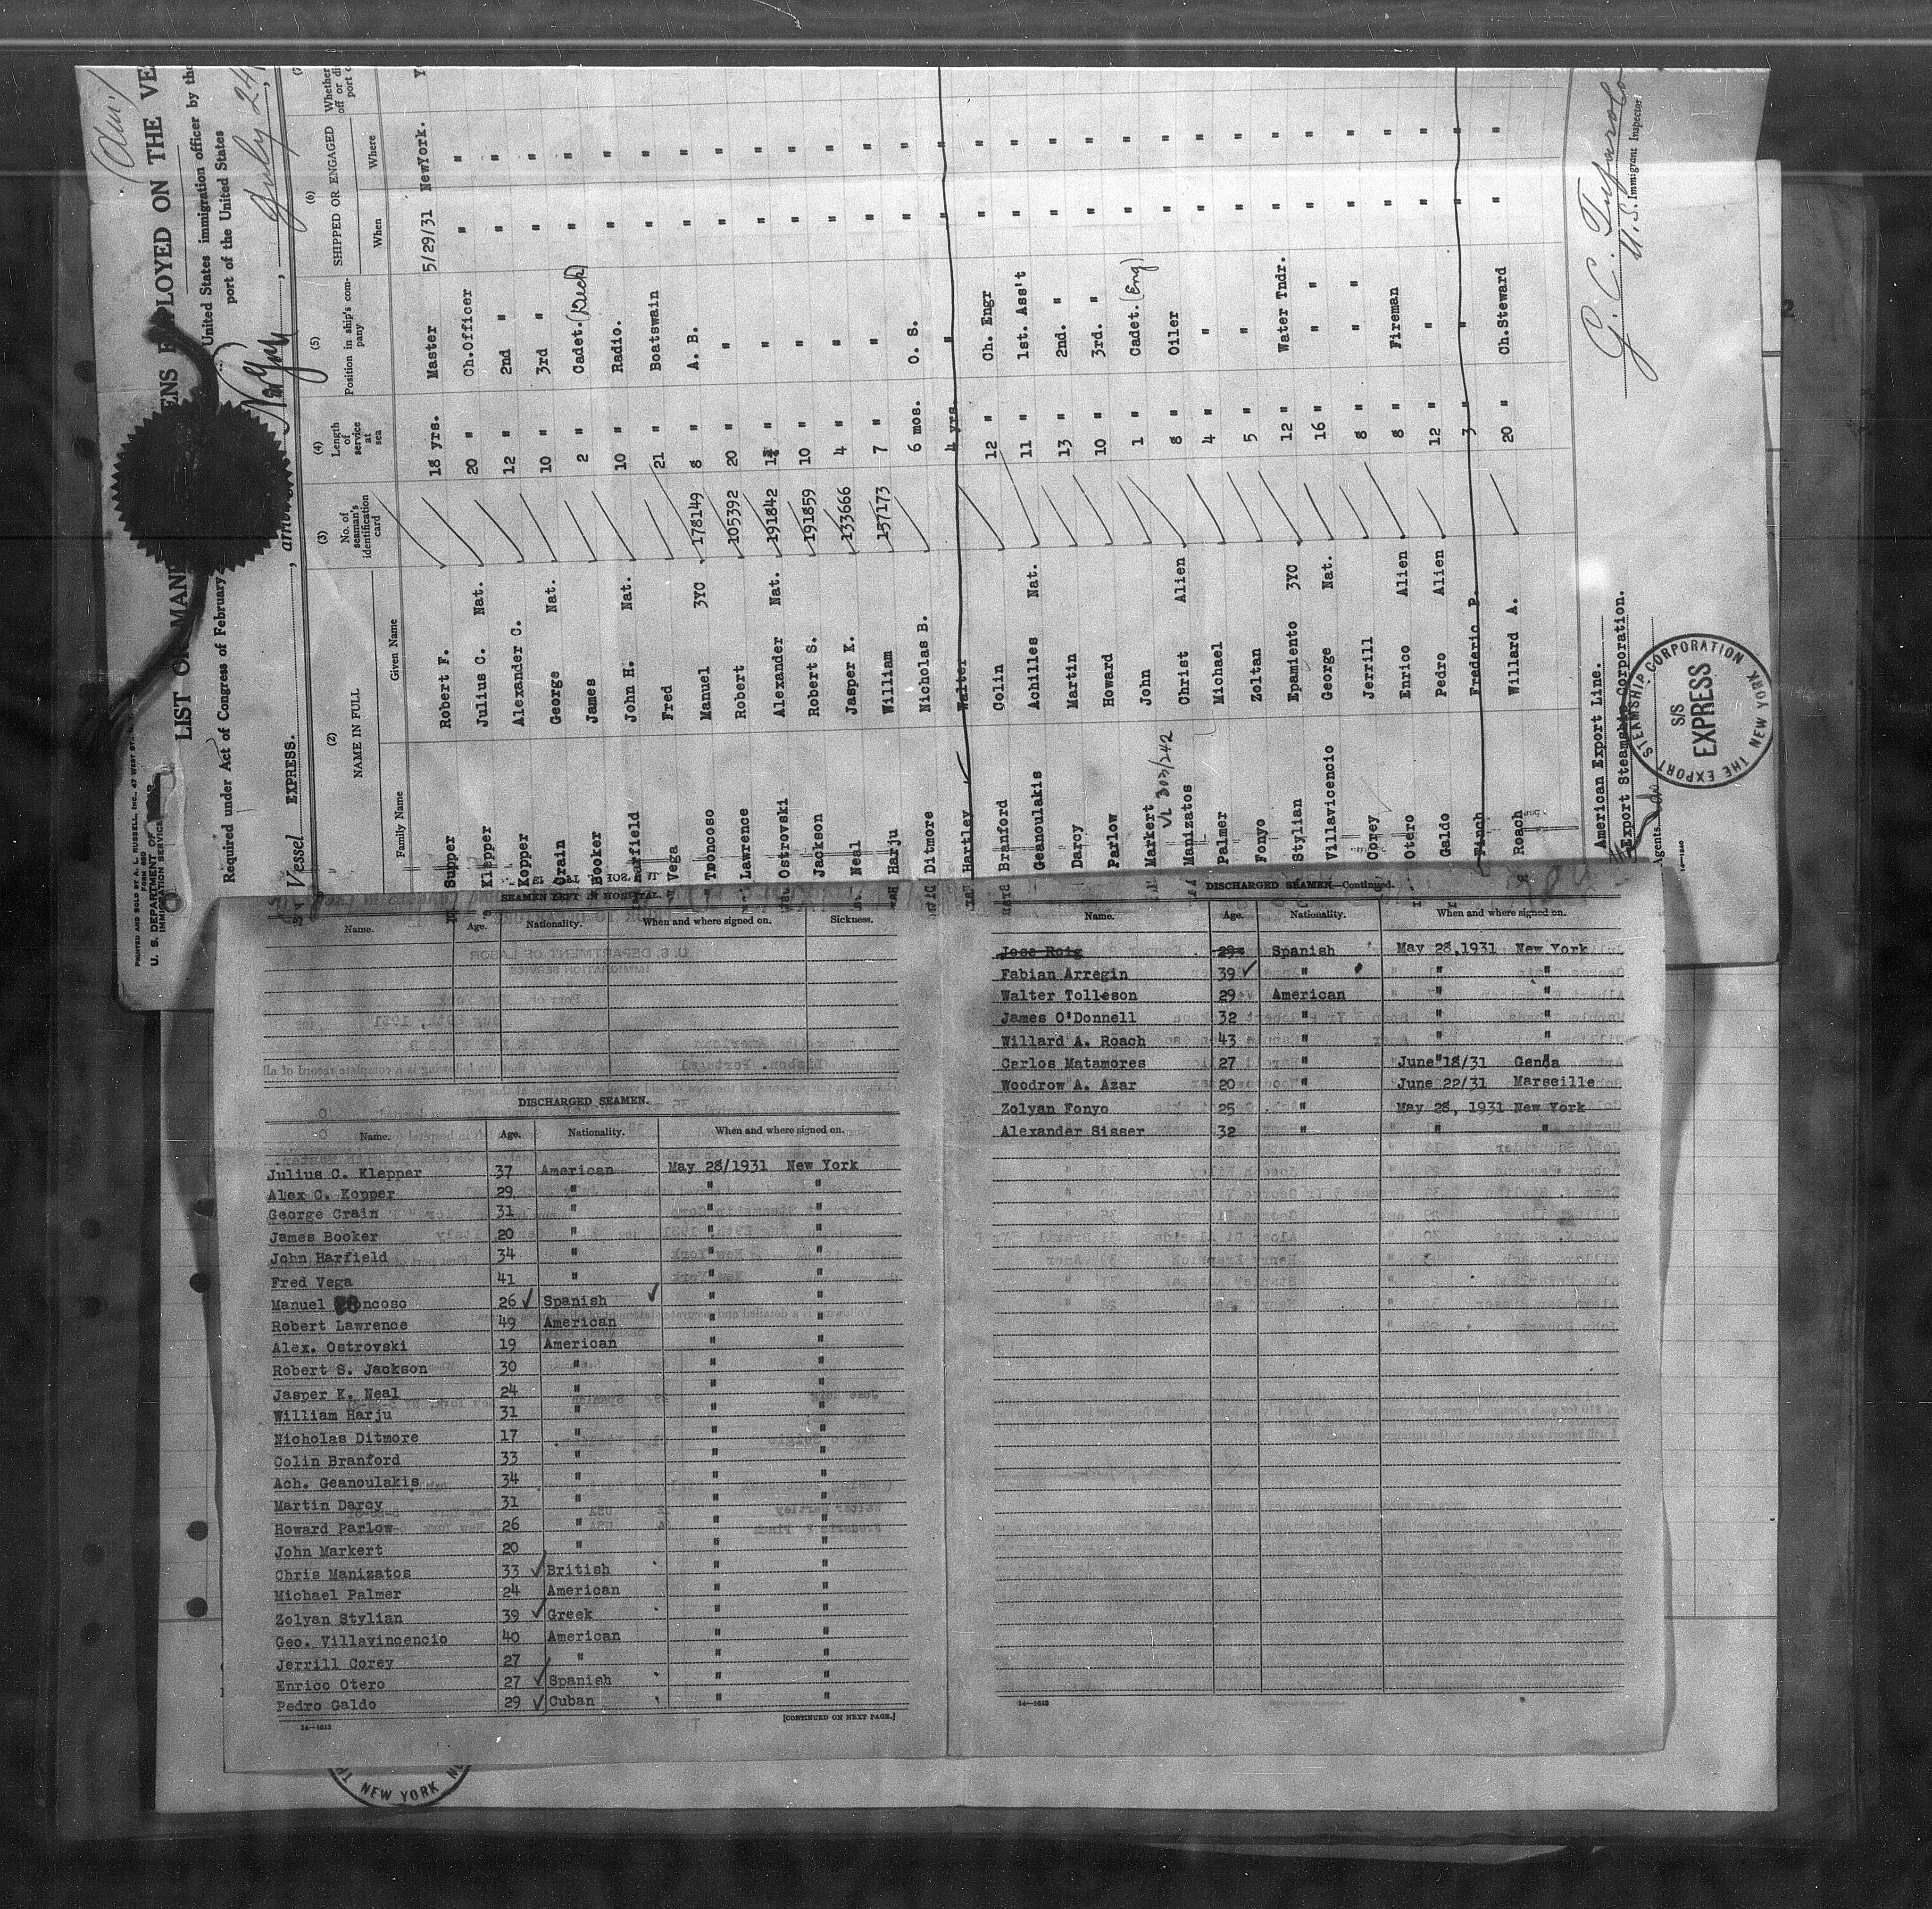 (Am)
LIST OR MAN
ENS EMPLOYED ON THE VE
Required under Act of Congress of February
United States immigration officer by the
port of the United States
PRINTED AND SOLD BY A. L. RUSSELL, INC., 47 WEST ST., N.
FORM 680
U. S. DEPARTMENT OF
IMMIGRATION SERVICE
Vessel EXPRESS. , July 24
(2) (3) (4) (5) (6)
NAME IN FULL No. of seaman's identification card Length of service at sea Position in ship's company SHIPPED OR ENGAGED Whether
Family Name Given Name When Where
Supper Robert F. 18 yrs. Master 5/29/31 NewYork.
Klepper Julius C. Nat. 20 " Ch.Officer " "
Kopper Alexander C. 12 " 2nd " " "
Crain George Nat. 10 " 3rd " " "
Booker James 2 " Cadet.(Deck) " "
Harfield John H. Nat. 10 " Radio. " "
Vega Fred 21 " Boatswain " "
Troncoso Manuel 3YC 178149 8 " A. B. " "
Lawrence Robert 105392 20 " " " "
Ostrovski Alexander Nat. 191842 " " " "
Jackson Robert S. 191859 10 " " " "
Neal Jasper K. 133666 4 " " " "
Harju William 157173 7 " " " "
Ditmore Nicholas B. 6 mos. O. S. " "
Hartley Walter 4 yrs. " " "
Branford Colin 12 " Ch. Engr " "
Geanoulakis Achilles Nat. 11 " 1st. Ass't " "
Darcy Martin 13 " 2nd. " " "
Parlow Howard 10 " 3rd. " " "
Markert John 1 " Cadet.(Eng) " "
VL 303/242
Manizatos Christ Alien 8 " Oiler " "
Palmer Michael 4 " " " "
Fonyo Zoltan 5 " " " "
Stylian Epamiento 3YC 12 " Water Tndr. " "
Villavicencio George Nat. 16 " " " " "
Corey Jerrill 8 " " " " "
Otero Enrico Alien 8 " Fireman " "
Galdo Pedro Alien 12 " " " "
Finch Frederic P. 3 " " " "
Roach Willard A. 20 " Ch.Steward " "
American Export Line.
Export Steamship Corporation.
Agents
14-1240
THE EXPORT STEAMSHIP CORPORATION
S/S
EXPRESS
NEW YORK
U. S. Immigrant Inspector
SEAMEN LEFT IN HOSPITAL.
Name. Age. Nationality. When and where signed on. Sickness.
DISCHARGED SEAMEN.
Name. Age. Nationality. When and where signed on.
Julius C. Klepper 37 American May 28/1931 New York
Alex C. Kopper 29 " " "
George Crain 31 " " "
James Booker 20 " " "
John Harfield 34 " " "
Fred Vega 41 " " "
Manuel Troncoso 26 ✓ Spanish ✓ " "
Robert Lawrence 49 American " "
Alex. Ostrovski 19 American " "
Robert S. Jackson 30 " " "
Jasper K. Neal 24 " " "
William Harju 31 " " "
Nicholas Ditmore 17 " " "
Colin Branford 33 " " "
Ach. Geanoulakis 34 " " "
Martin Darcy 31 " " "
Howard Parlow 26 " " "
John Markert 20 " " "
Chris Manizatos 33 ✓ British " "
Michael Palmer 24 American " "
Zolyan Stylian 39 ✓ Greek " "
Geo. Villavincencio 40 American " "
Jerrill Corey 27 " " "
Enrico Otero 27 ✓ Spanish " "
Pedro Galdo 29 ✓ Cuban " "
14—1613 [CONTINUED ON NEXT PAGE.]
DISCHARGED SEAMEN—Continued.
Name. Age. Nationality. When and where signed on.
Jose Roig 29 Spanish May 28,1931 New York
Fabian Arregin 39 ✓ " " "
Walter Tolleson 29 American " "
James O'Donnell 32 " " "
Willard A. Roach 43 " " "
Carlos Matamores 27 " June 18/31 Genoa
Woodrow A. Azar 20 " June 22/31 Marseille
Zolyan Fonyo 25 " May 28, 1931 New York
Alexander Sisser 32 " " "
14—1613
NEW YORK